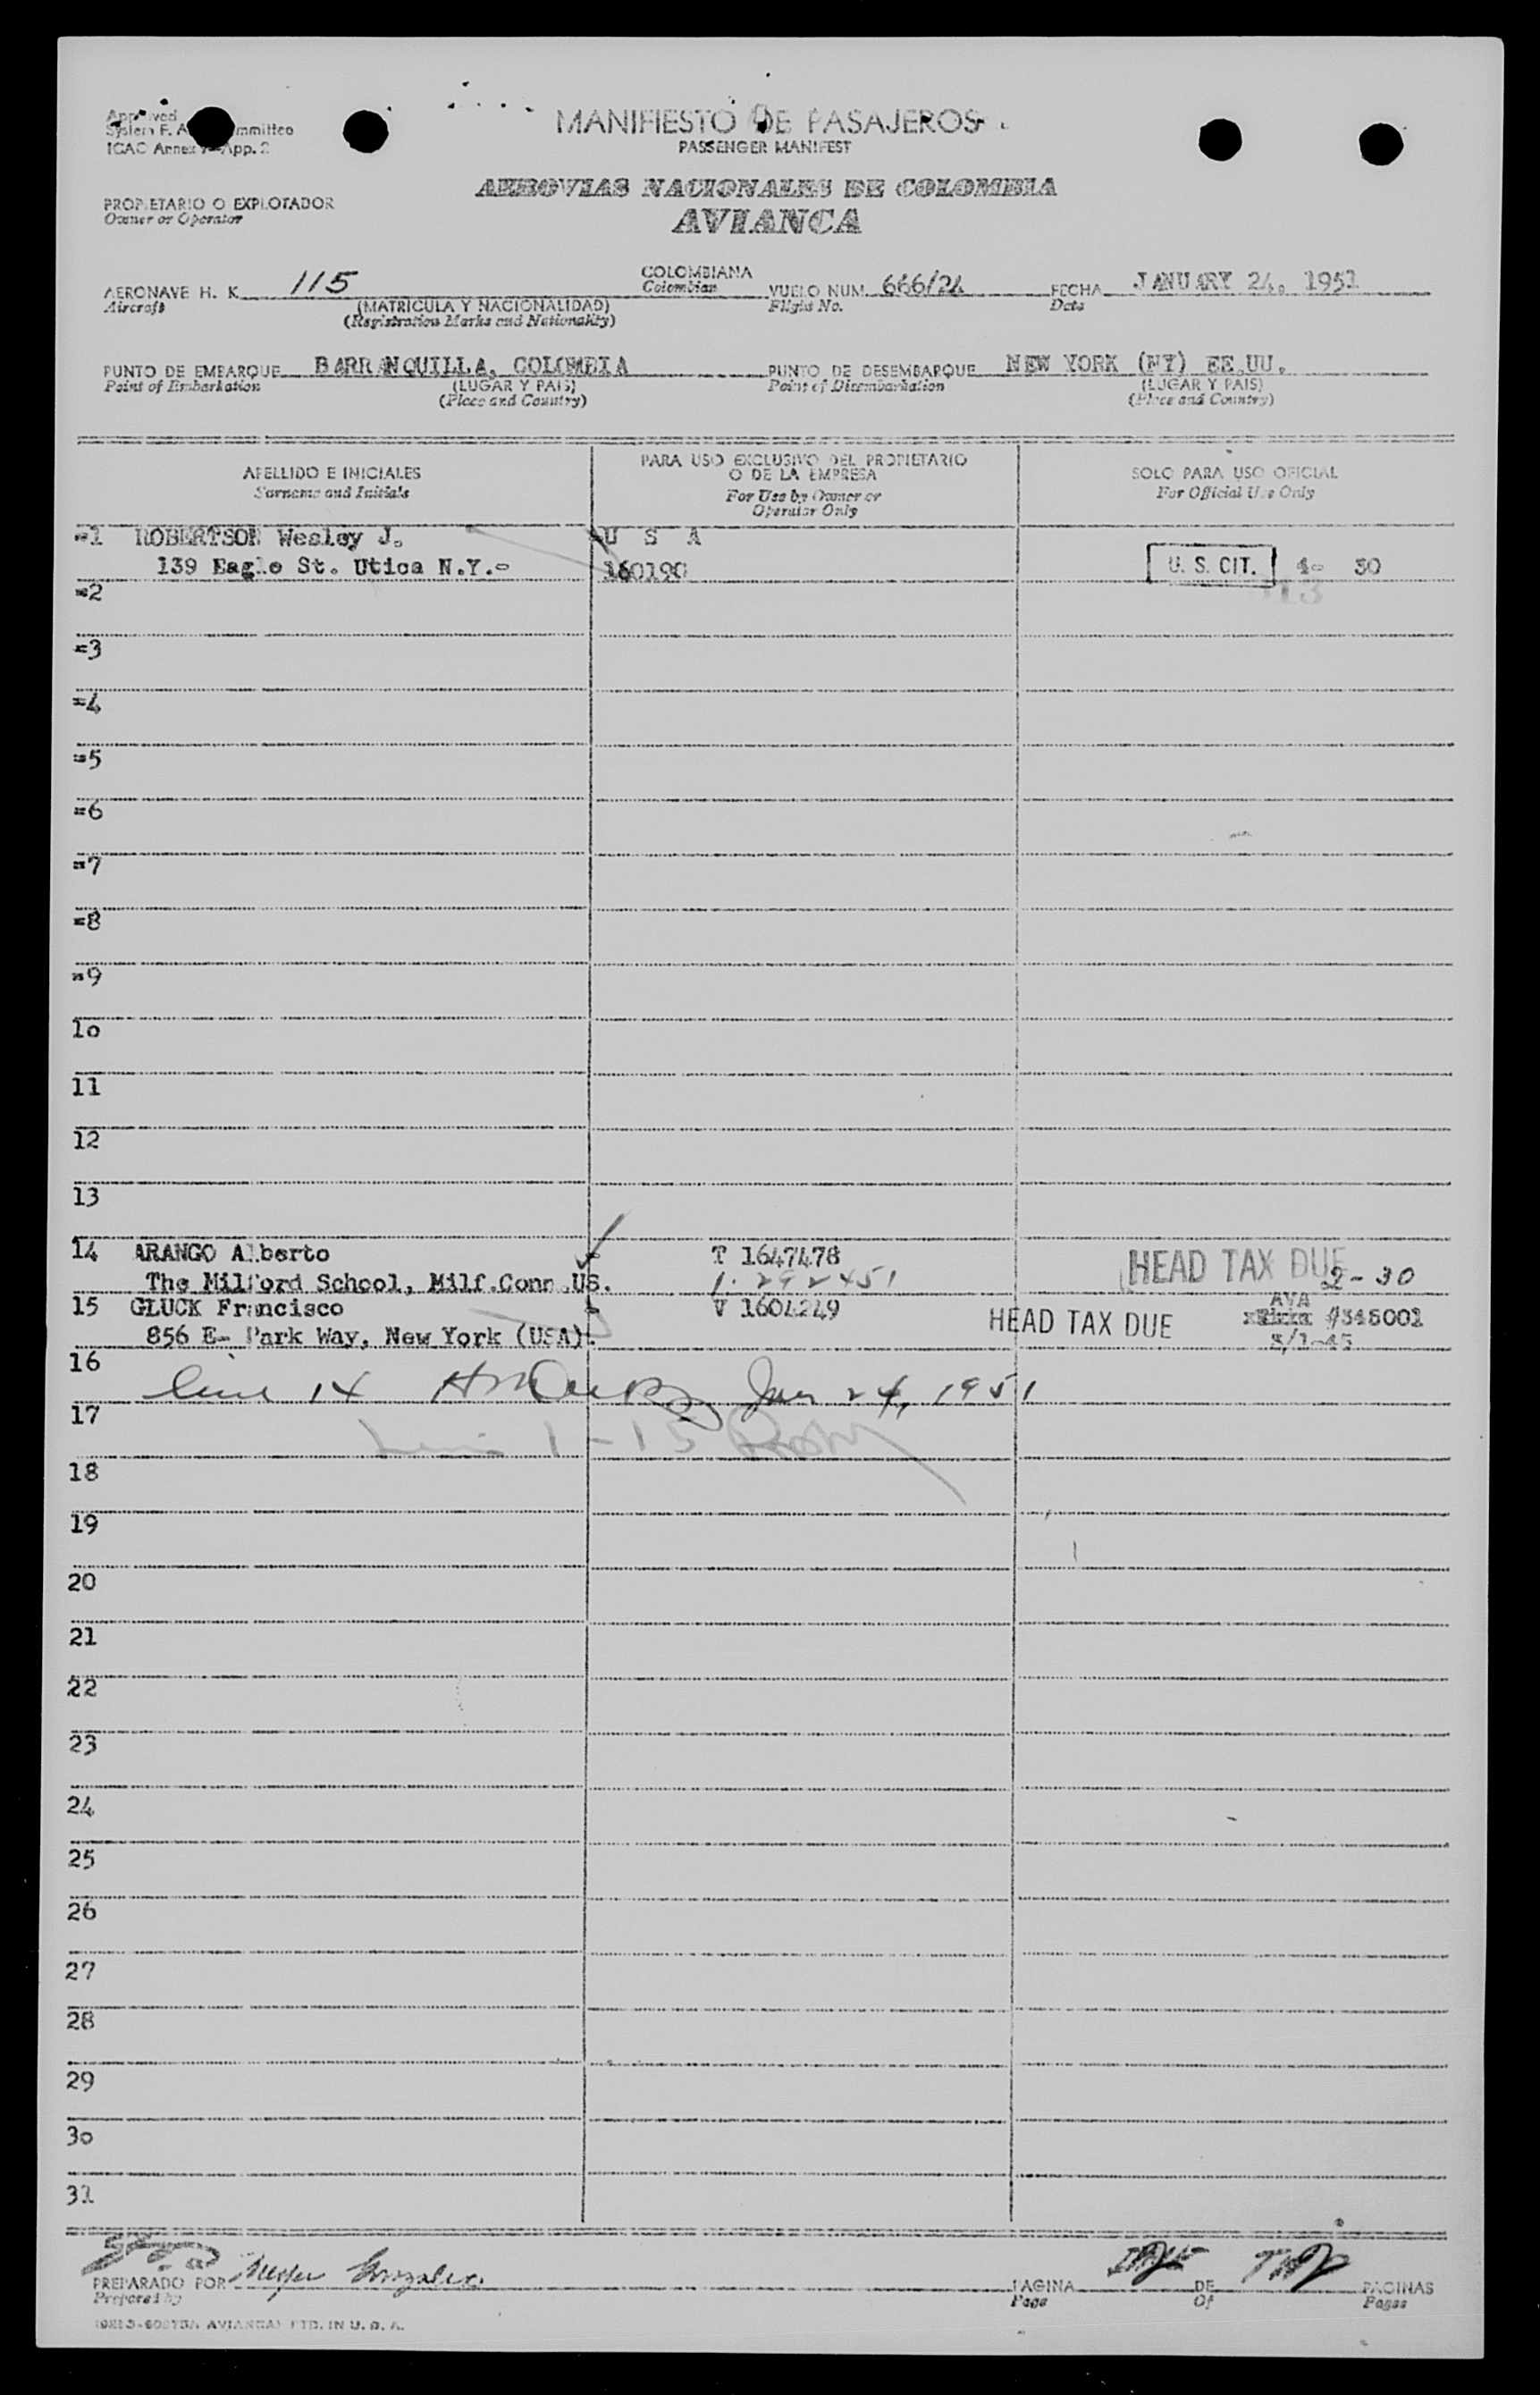 Approved
System F. A. Committee
ICAO Annex App. 2
MANIFIESTO DE PASAJEROS
PASSENGER MANIFEST
AEROVIAS NACIONALES DE COLOMBIA
AVIANCA
PROPIETARIO O EXPLOTADOR
Owner or Operator
AERONAVE H. K. 115 COLOMBIANA VUELO NUM. 666/24 FECHA JANUARY 24, 1951
Aircraft (MATRICULA Y NACIONALIDAD) Colombian Flight No. Date
(Registration Marks and Nationality)
PUNTO DE EMBARQUE BARRANQUILLA, COLOMBIA PUNTO DE DESEMBARQUE NEW YORK (NY) EE.UU.
Point of Embarkation (LUGAR Y PAIS) Point of Disembarkation (LUGAR Y PAIS)
(Place and Country) (Place and Country)
APELLIDO E INICIALES PARA USO EXCLUSIVO DEL PROPIETARIO O DE LA EMPRESA SOLO PARA USO OFICIAL
Surname and Initials For Use by Owner or Operator Only For Official Use Only
=1 ROBERTSON Wesley J. U S A
139 Eagle St. Utica N.Y.- 160190 U. S. CIT. 30
=2
=3
=4
=5
=6
=7
=8
=9
1o
11
12
13
14 ARANGO Alberto T 1647478 HEAD TAX DUE
The Milford School, Milf.Conn.US. 2-30
15 GLUCK Francisco V 1604249 HEAD TAX DUE AVA #348001
856 E- Park Way, New York (USA).
16
line 14 Jan 24, 1951
17
1-15
18
19
20
21
22
23
24
25
26
27
28
29
3o
31
PREPARADO POR Gonzalez PAGINA DE PAGINAS
Prepared by Page Of Pages
AVIANCA PTD. IN U. S. A.